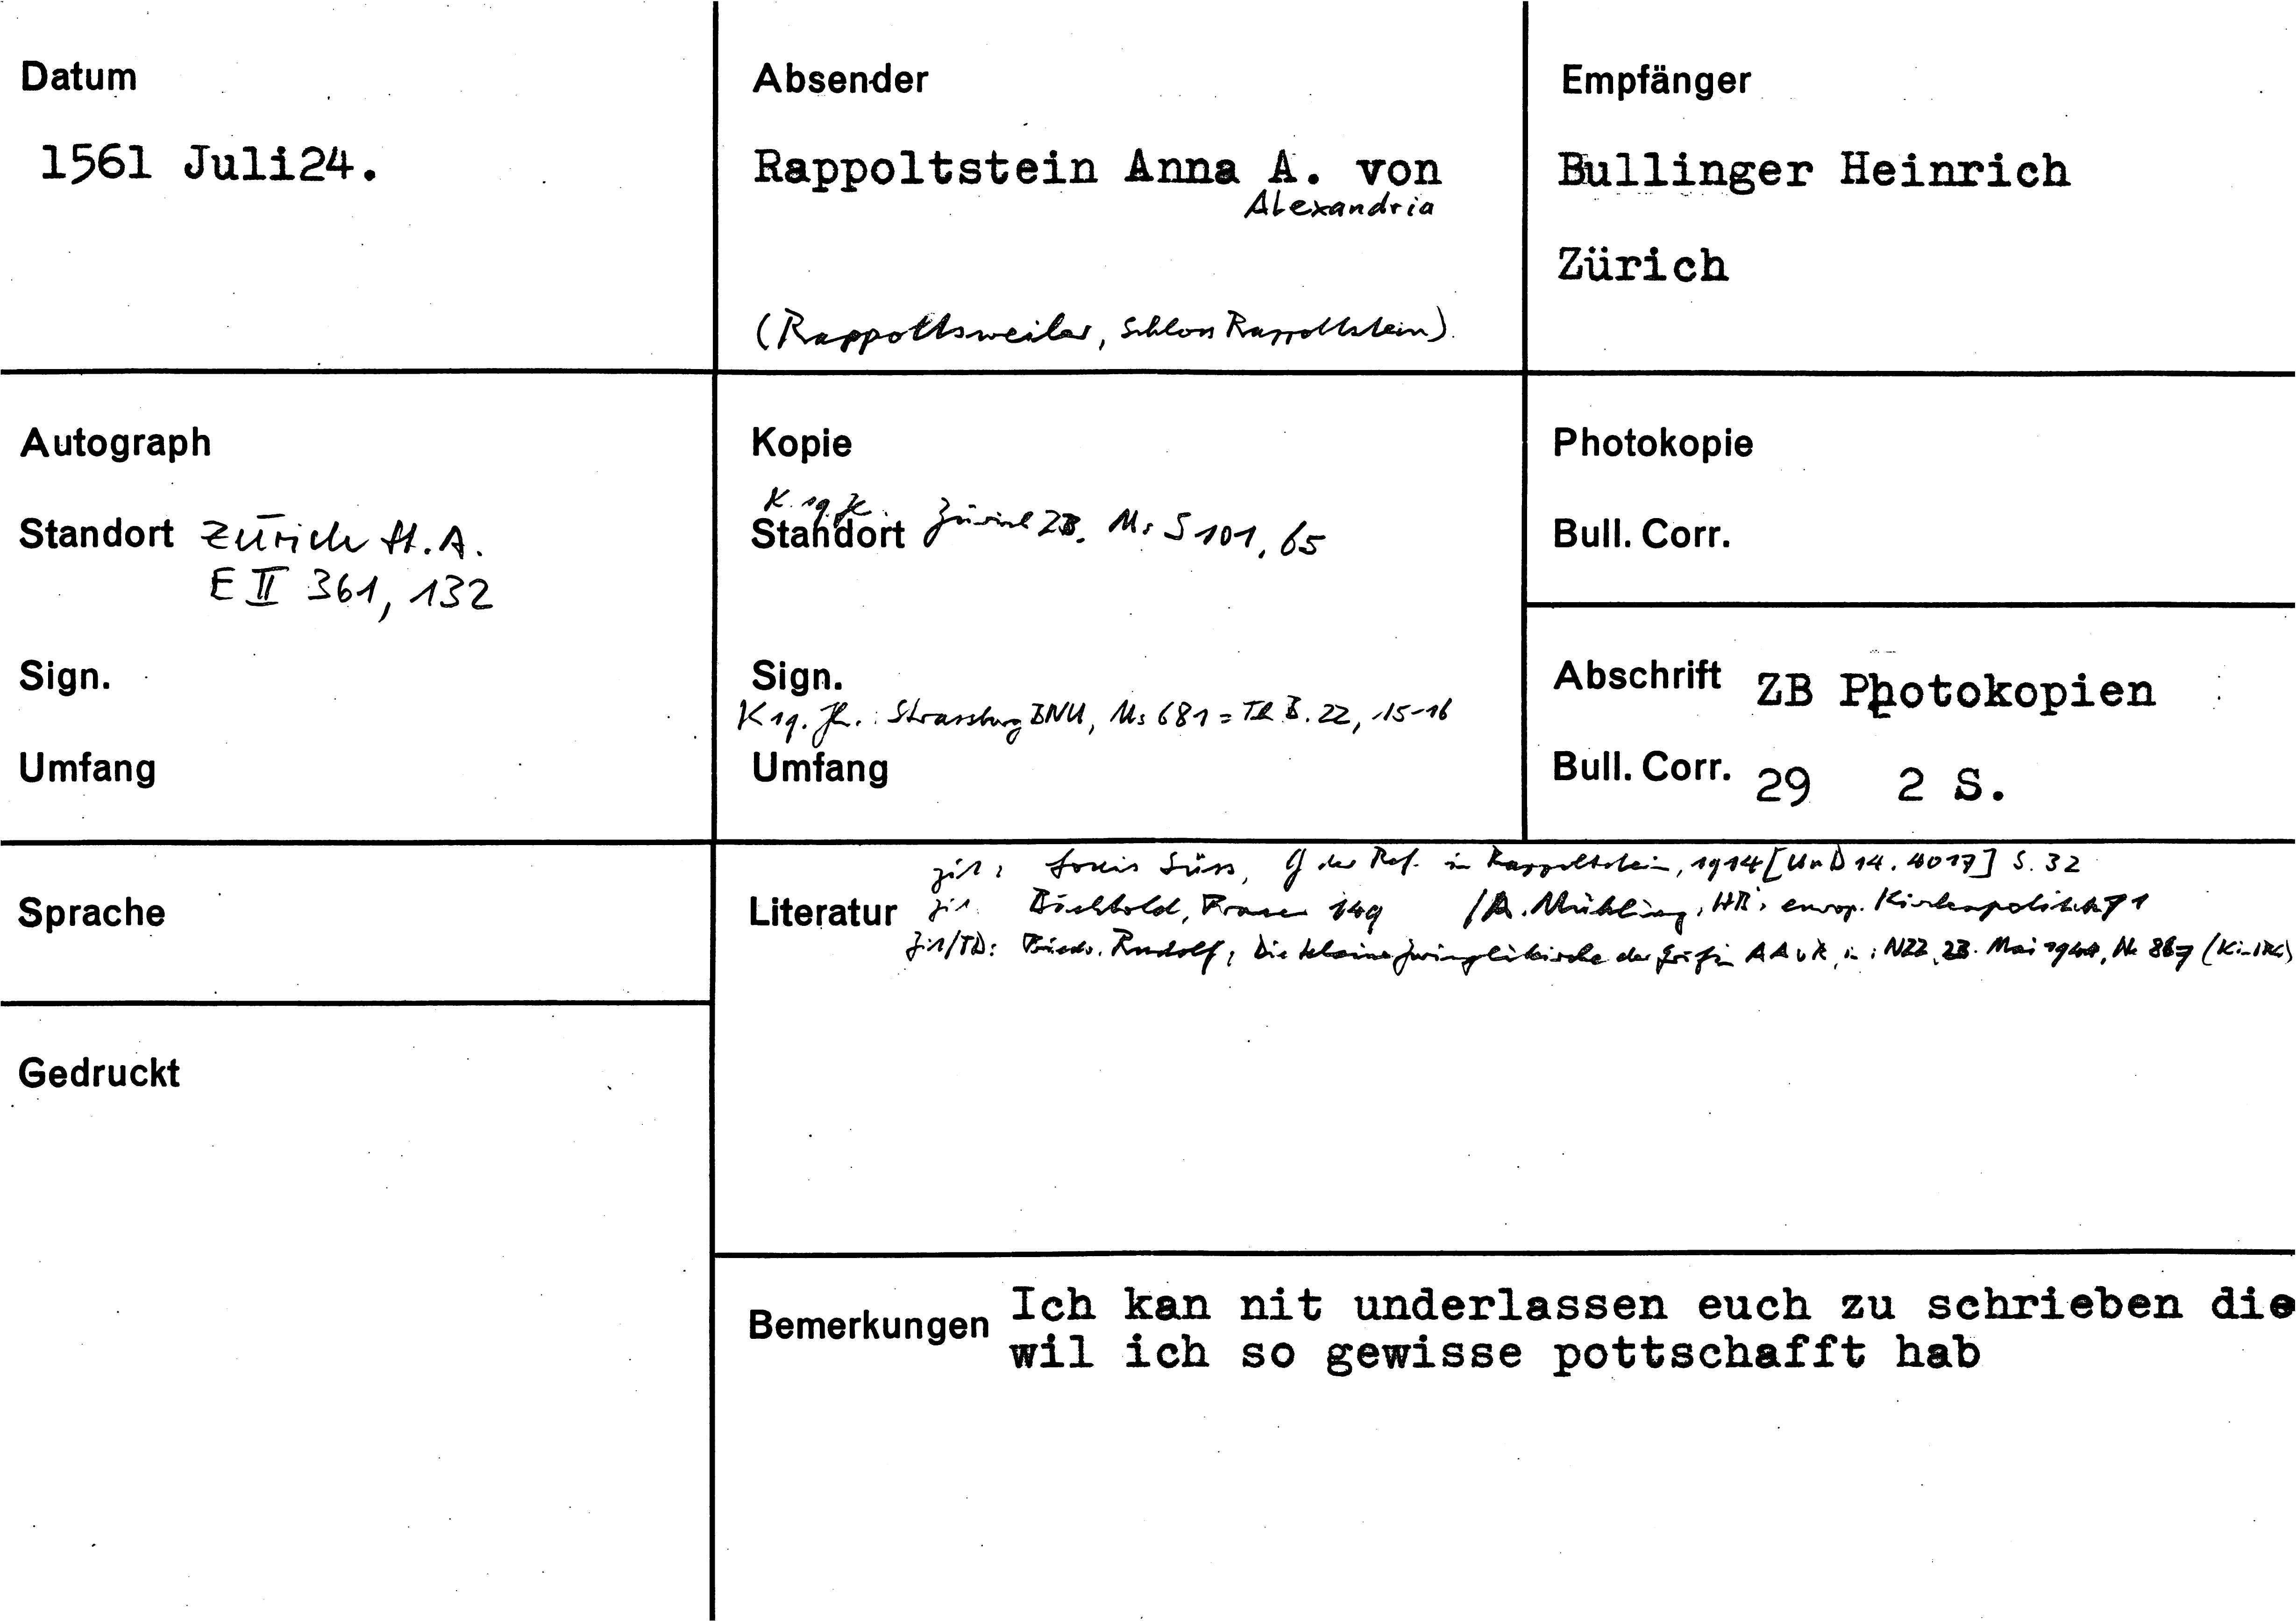 Datum
1561 Juli24.
Absender
Rappoltstein Anna A. von
Alexandria
(Rappoltsweiler, Schloss Rappoltstein)
Empfänger
Bullinger Heinrich
Zürich
Autograph
Standort Zürich St.A.
E II 361, 132
Sign.
Umfang
Kopie
K. 19. Jh.
Standort Zürich ZB, Ms S 101, 65
Sign.
K 19. Jh.: Strassburg BNU, Ms 681 = TB B. 22, 15-16
Umfang
Photokopie
Bull. Corr.
Abschrift ZB Photokopien
Bull. Corr. 29 2 S.
Sprache
Gedruckt
zit: Louis Süss, G der Ref. in Rappoltstein, 1914 [UnD 14.4017] S. 32
Literatur zit. Bächtold, Frauen 149 /A. Mühling, HB's europ. Kirchenpolitik 71
Zit/TD: Friedr. Rudolf, Die kleine Zwinglikirche der Gräfin AAvR, in: NZZ, 23. Mai 1944, Nr 867
Bemerkungen Ich kan nit underlassen euch zu schrieben die
wil ich so gewisse pottschafft hab